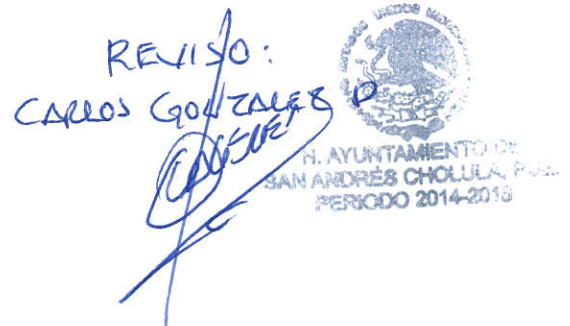 REVISO:
CARLOS GONZALEZ D
ESTADOS UNIDOS MEXICANOS
H. AYUNTAMIENTO DE
SAN ANDRÉS CHOLULA, PUE.
PERIODO 2014-2018